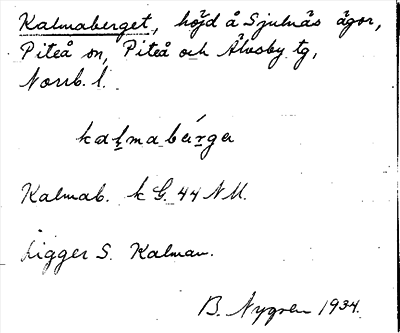 Kalmaberget, höjd å Sjulnäs ägor,
Piteå sn, Piteå och Älvsby tg,
Norrb. l.
kalmabérga
Kalmab. k G. 44 NU.
Ligger S. Kalman.
B. Nygren 1934.